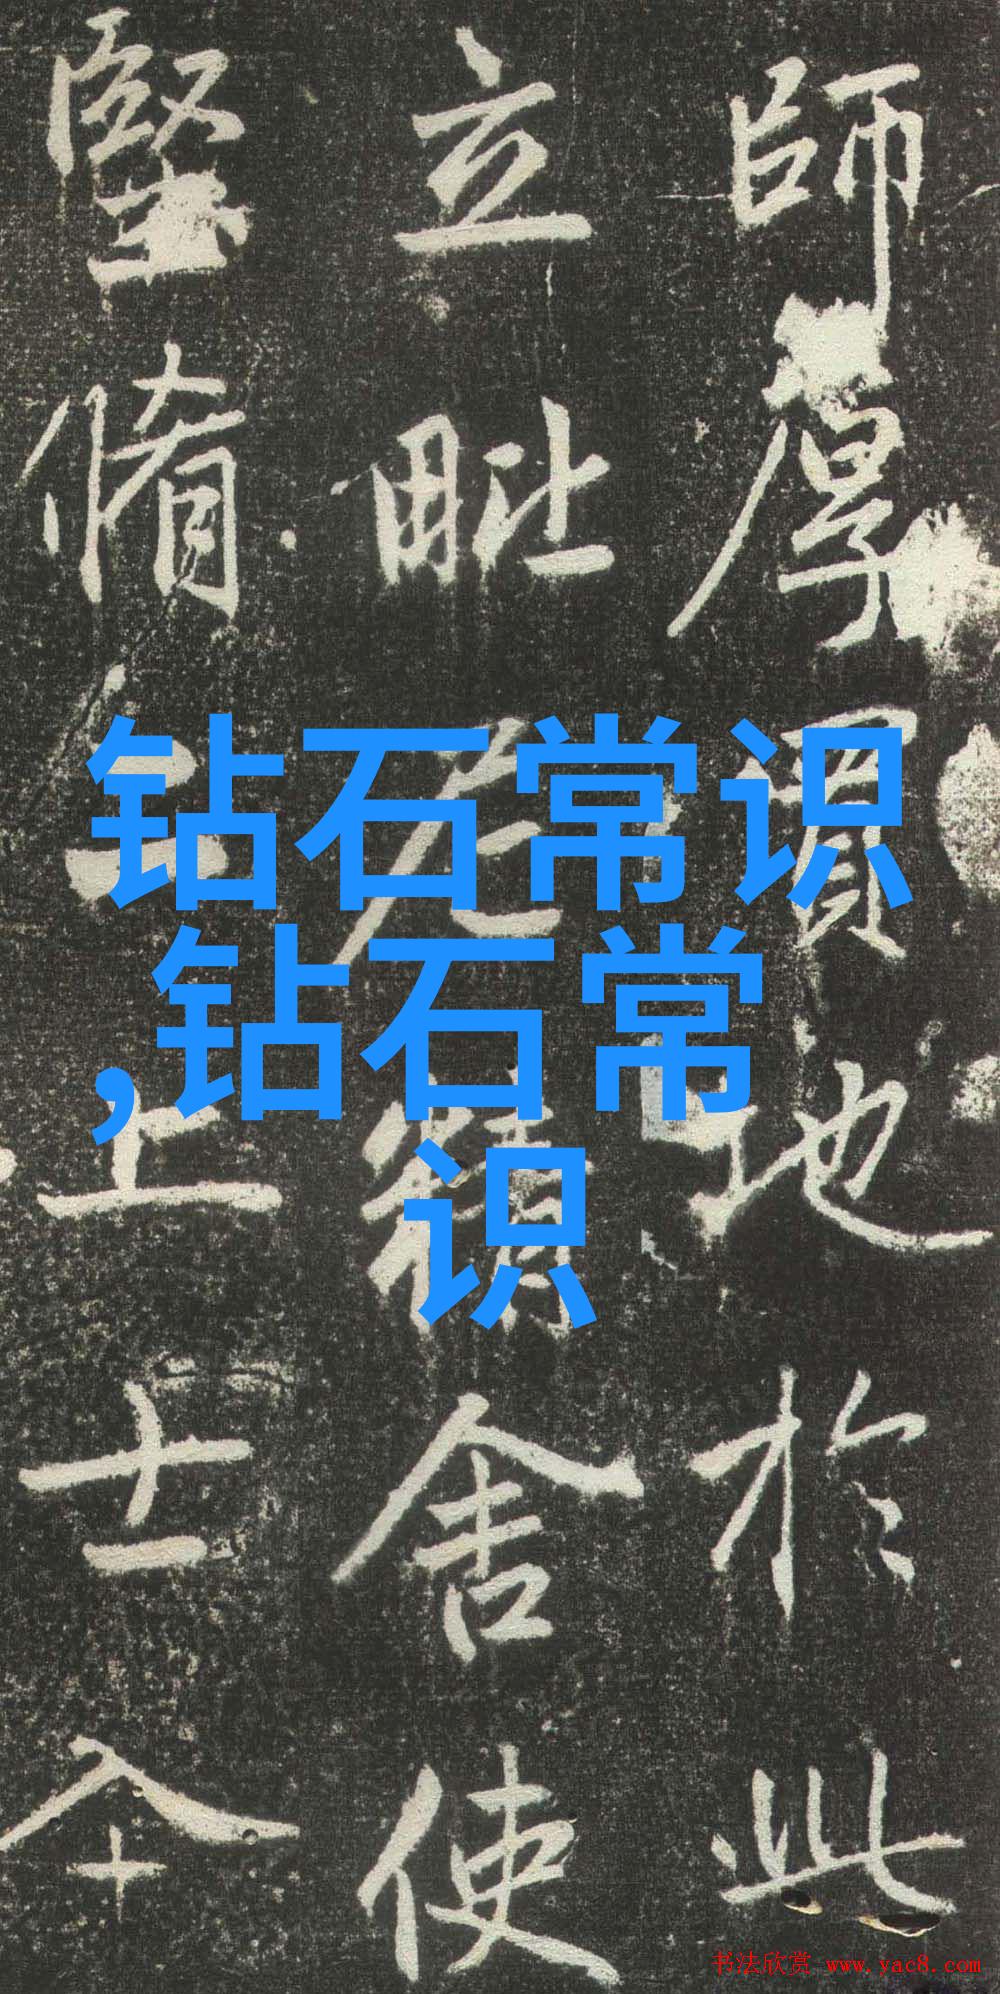 師厚賈地於此
立毗尼藏舍使
堅脩
上士
钻石常识
,钻石常
识
书法欣赏 www.yac8.com